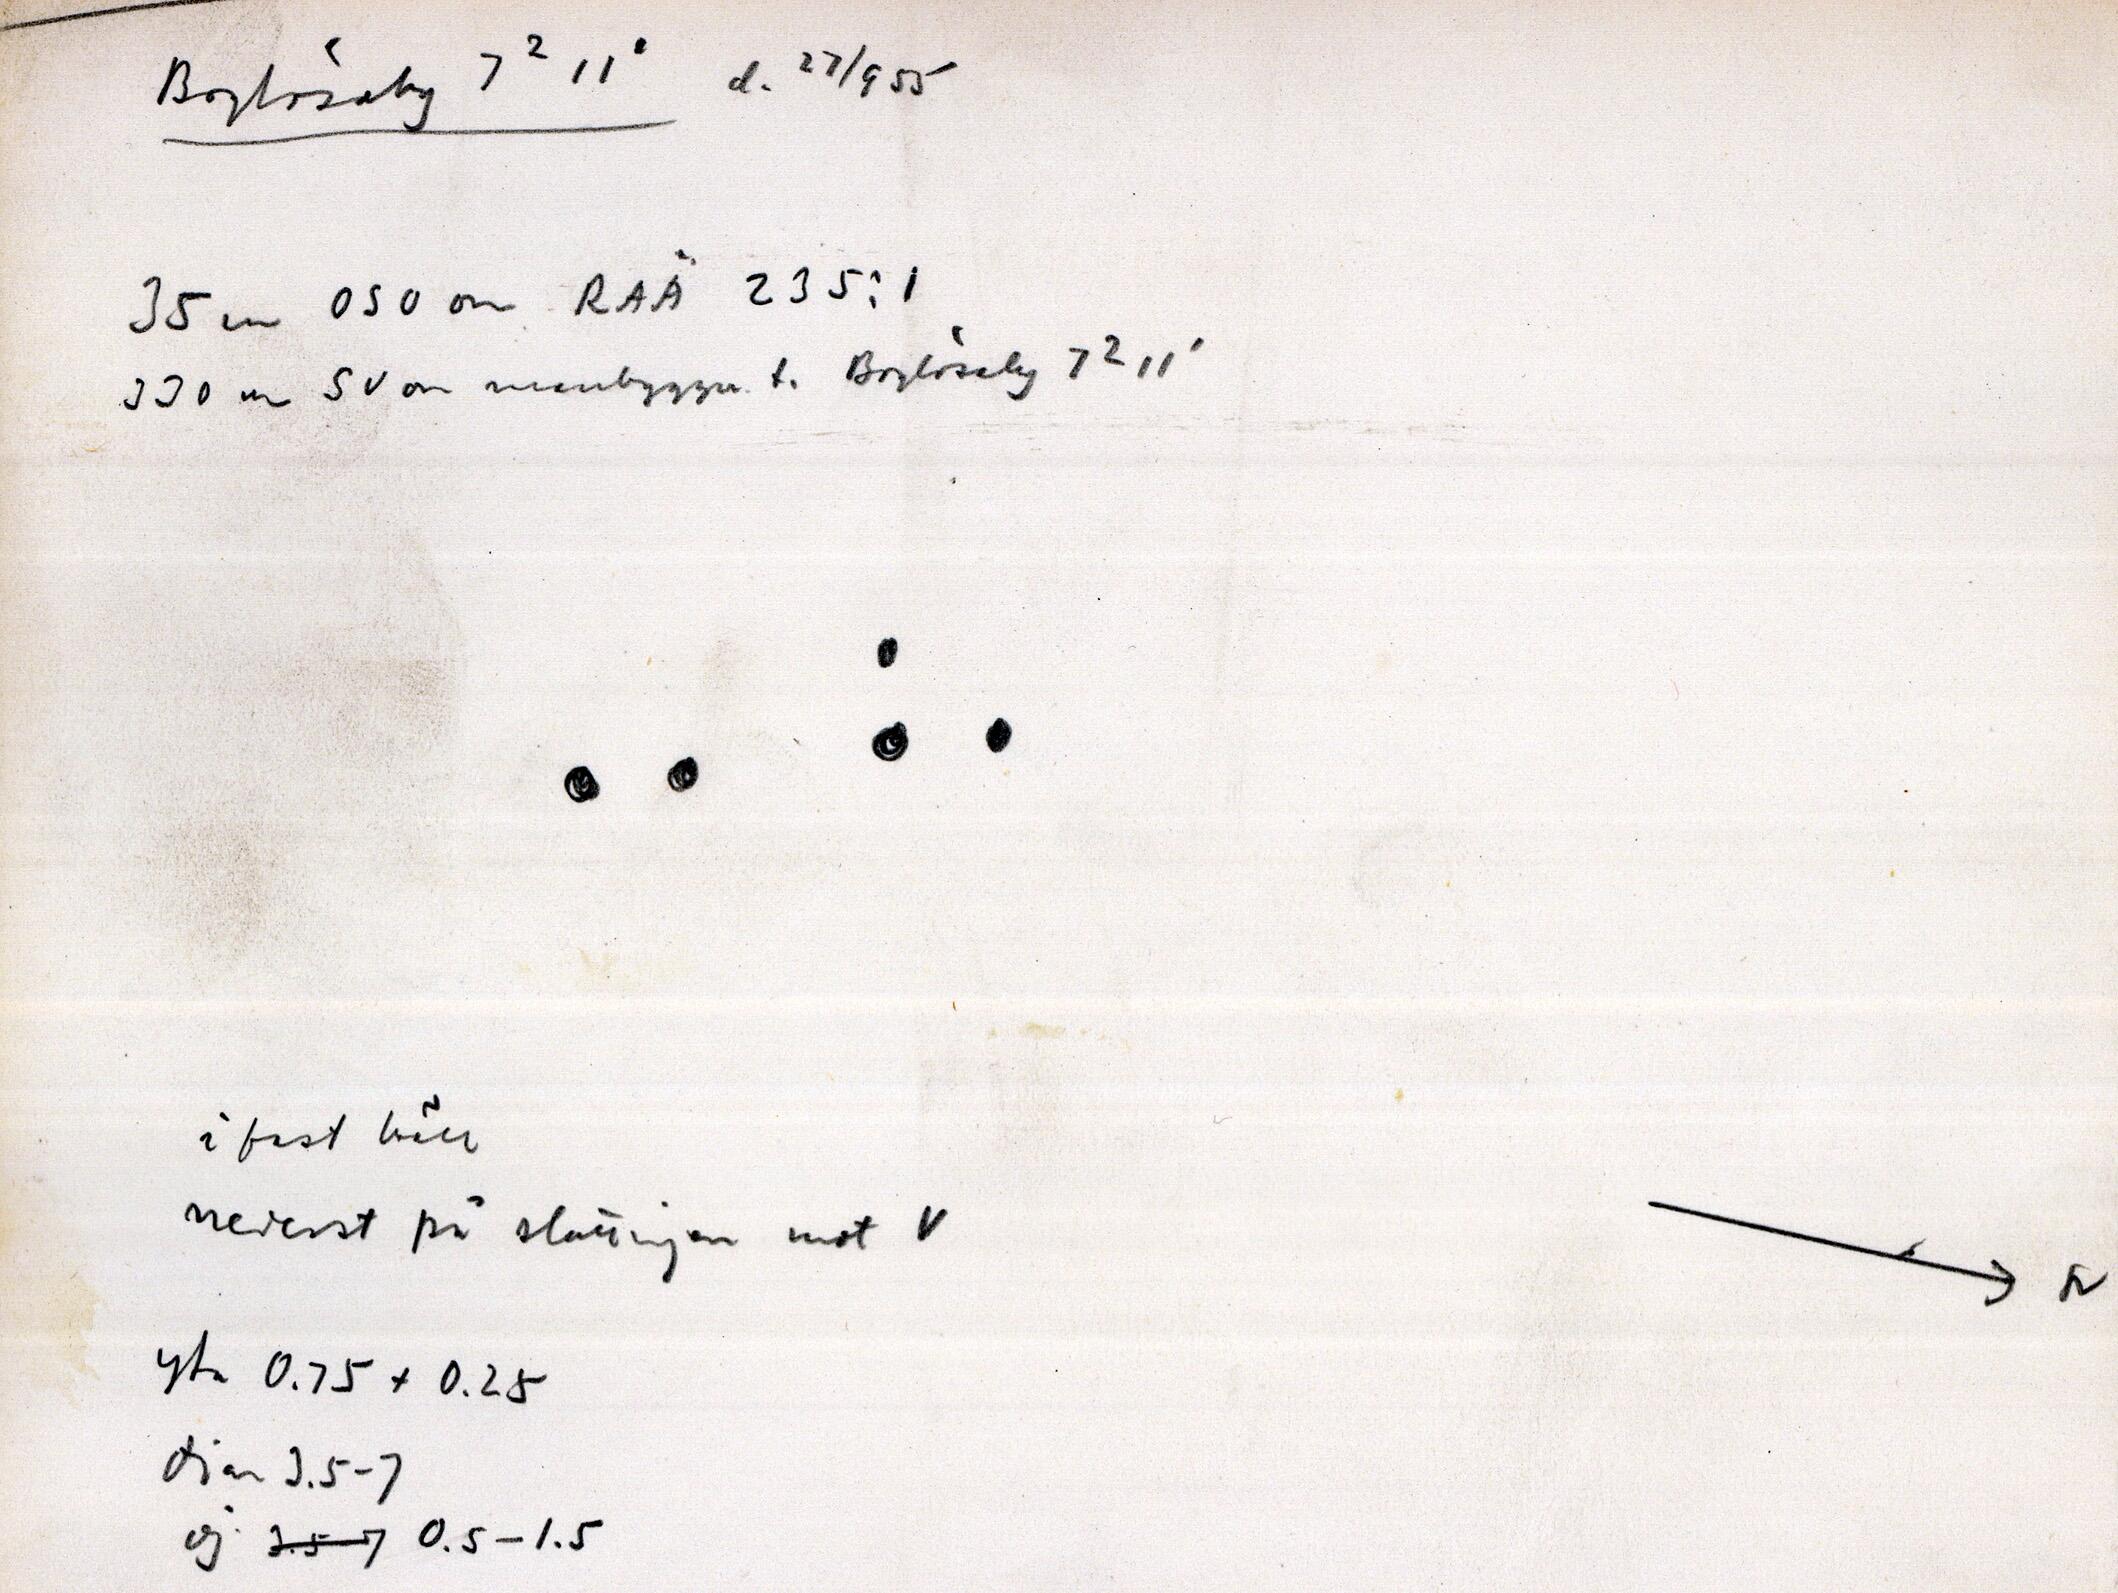 Boglösaby 7² 11¹ d. 27/9 55
35 m OSO om RAÄ 235:1
330 m SV om manbyggn. t. Boglösaby 7² 11¹
i fast häll
nederst på sluttningen mot V
N
yta 0.75 + 0.25
diam 3.5-7
dj 3.5-7 0.5-1.5